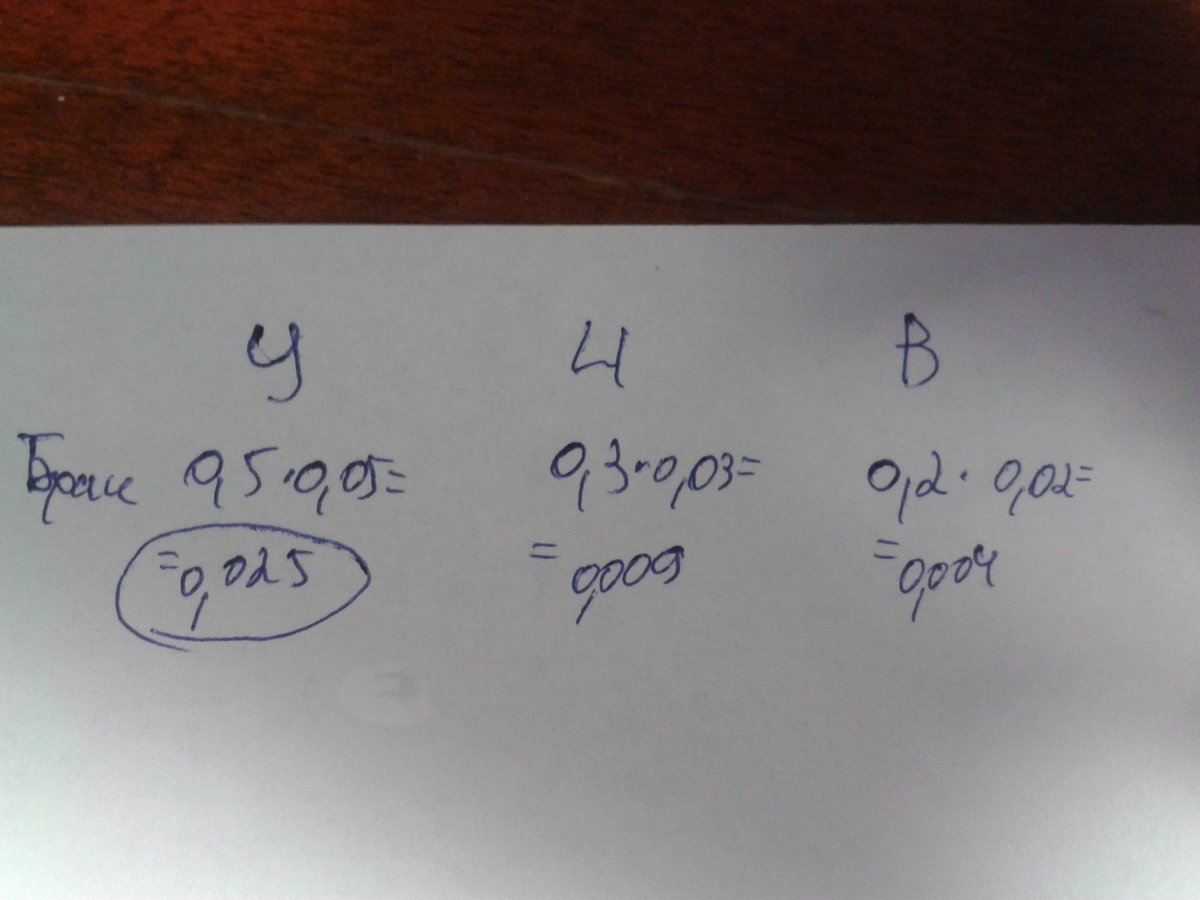 У Ц В
Брак 0,5·0,05= 0,3·0,03= 0,2·0,02=
=0,025 =0,009 =0,004